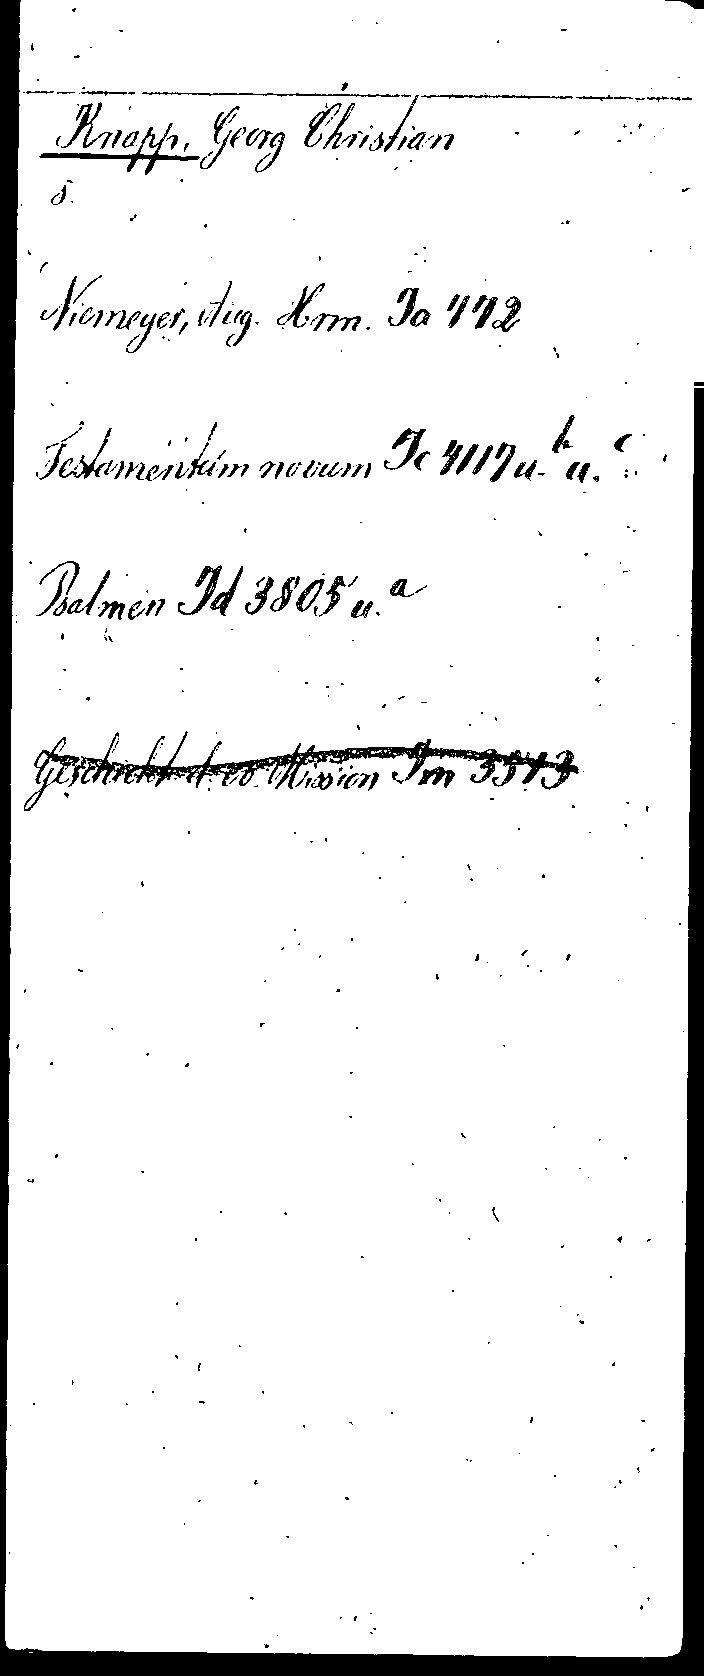 Knapp, Georg Christian
s.
Niemeyer, Aug. Hrm. Ia 442
Testamentum novum Ic 4117 u. b u. c
Psalmen Id 3805 u. a
Geschicht d. ev. Mission Im 3513